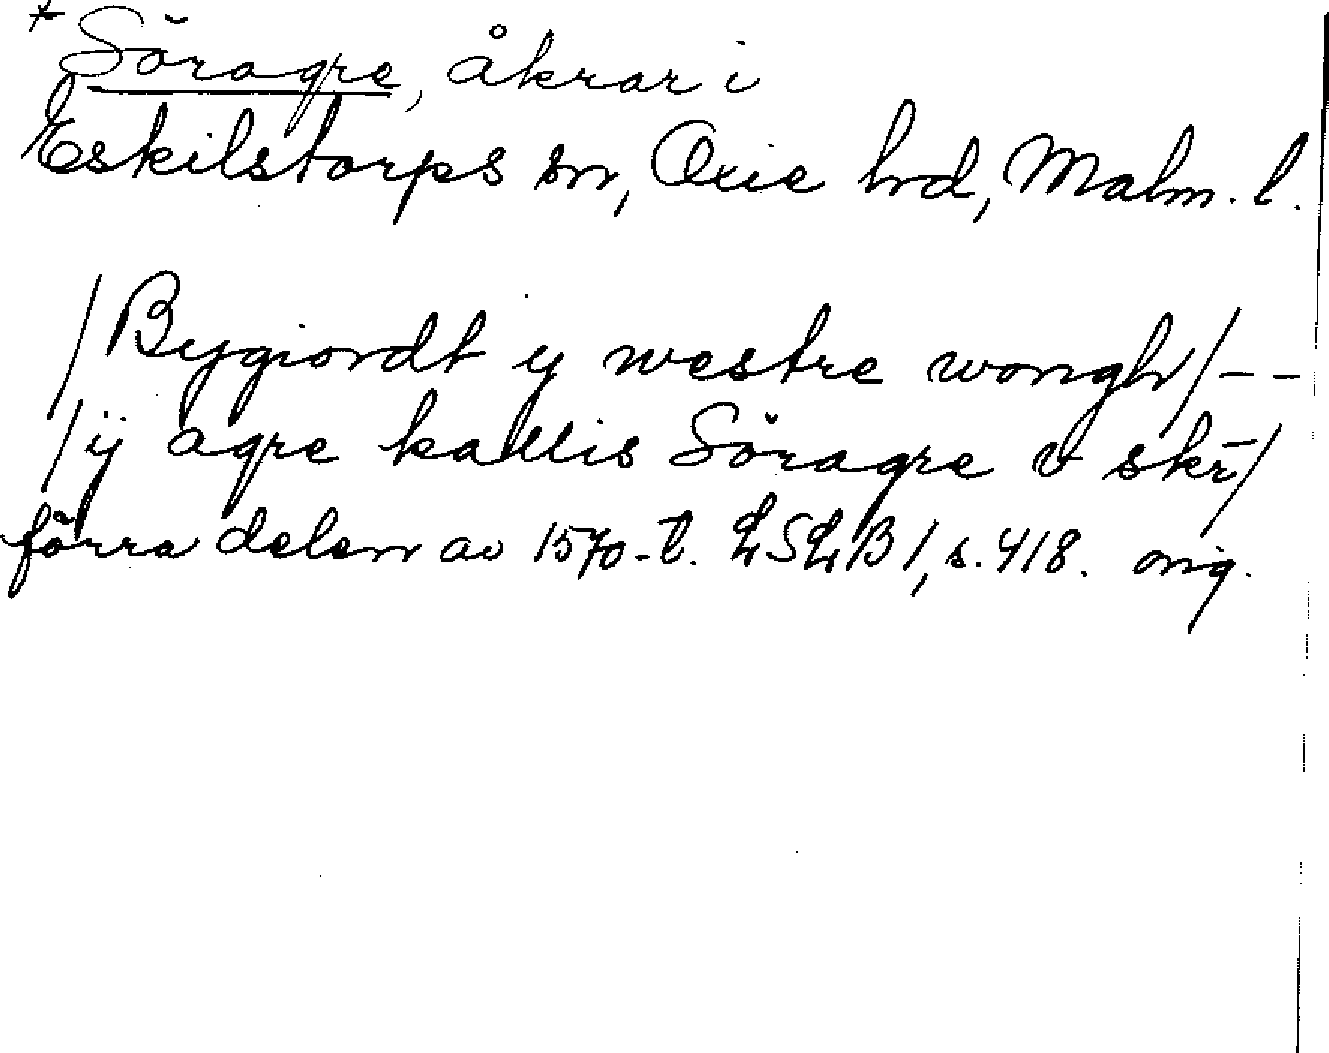 * Söragre, åkrar i
Eskilstorps sn, Oxie hrd, Malm. l.
/Bygiordt y westre wongh/--
/ij agre kallis Söragre v skr̄/
förra delen av 1570-t. LSLB 1, s. 418. orig.